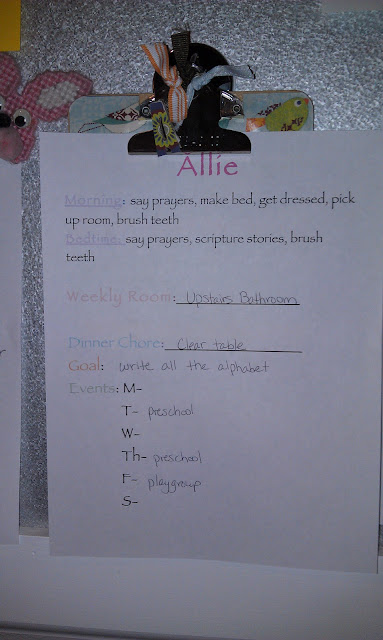 Allie
Morning: say prayers, make bed, get dressed, pick
up room, brush teeth
Bedtime: say prayers, scripture stories, brush
teeth
Weekly Room: Upstairs Bathroom
Dinner Chore: Clear table
Goal: write all the alphabet
Events: M-
T- preschool
W-
Th- preschool
F- playgroup
S-